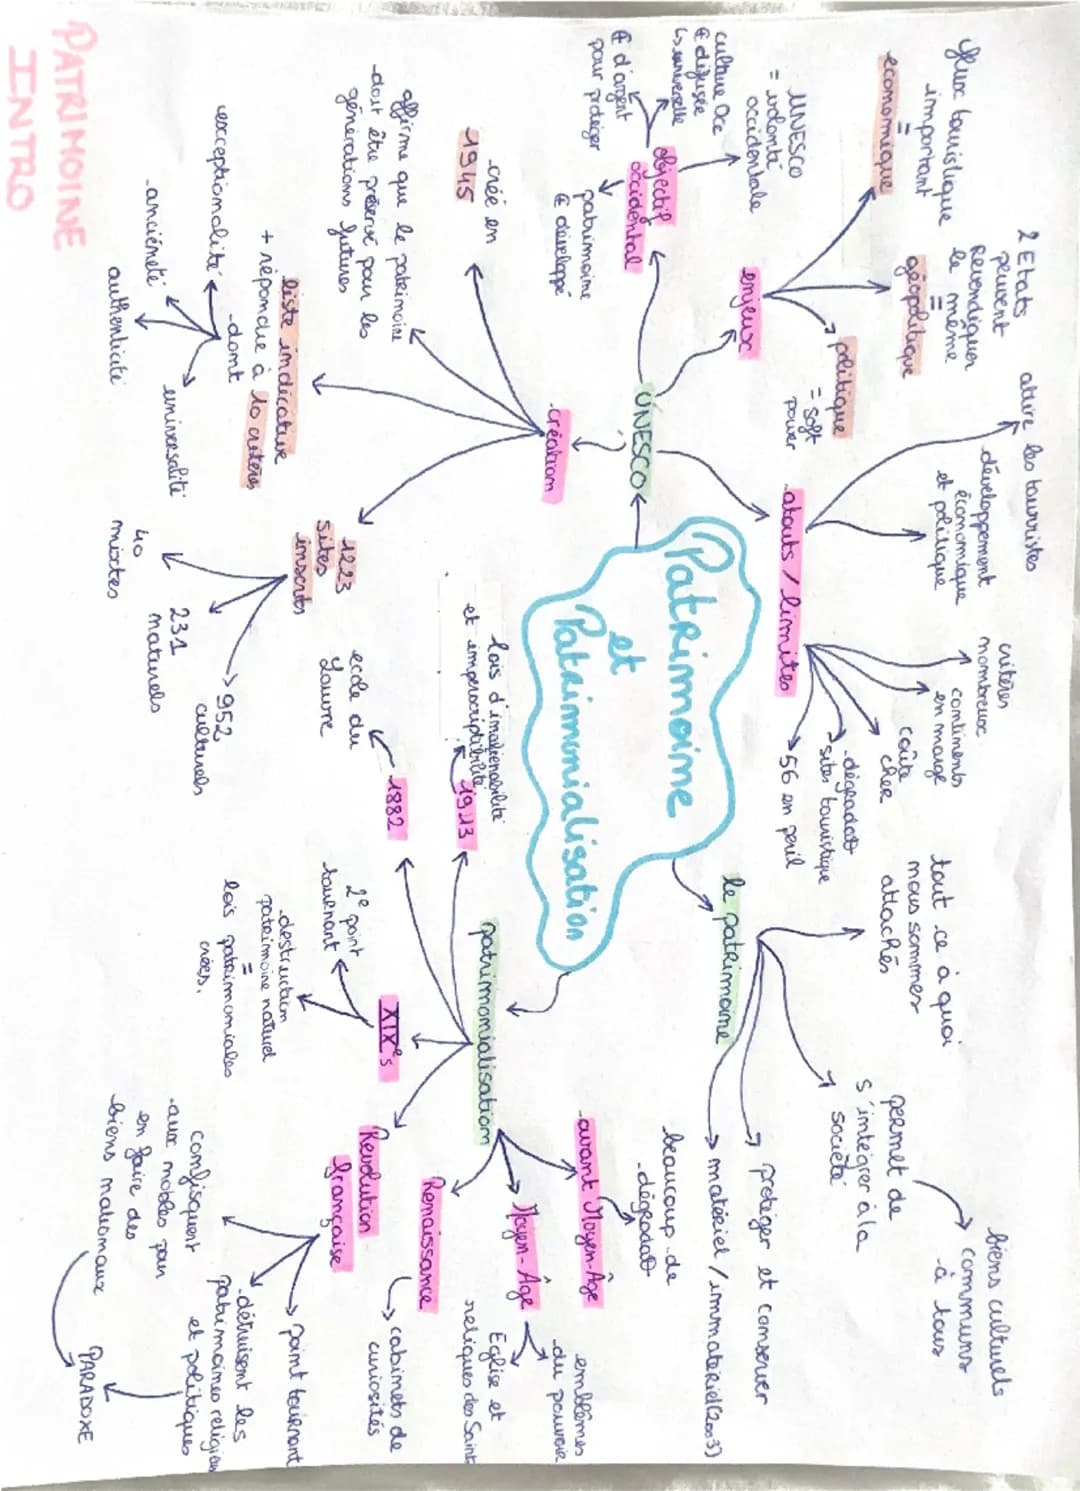 PATRIMOINE
INTRO
Patrimoine
et
Patrimonialisation
UNESCO
objectif
occidental
culture occ
⊕ diffusée
↳ universelle
⊕ d'argent
pour protéger
patrimoine
⊕ développé
UNESCO
= volonté
occidentale
enjeux
économique
=
important
géopolitique
=
2 Etats
peuvent
revendiquer
le même
politique
= soft
power
-atouts / limites
attire les touristes
-développement
économique
et politique
critères
nombreux
continents
en marge
coûte
cher
-dégradat°
sites touristique
56 en péril
-création
-créé en
1945
affirme que le patrimoine
-doit être préservé pour les
générations futures
liste indicative
+ répondre à 10 critères
-dont
exceptionnalité
-ancienneté
authenticité
universalité
1223
sites
inscrits
952
culturels
231
naturels
40
mixtes
le patrimoine
tout ce à quoi
nous sommes
attachés
permet de
s'intégrer à la
société
biens culturels
communs
-à tous
protéger et conserver
matériel / immatériel (2003)
patrimonialisation
-avant Moyen-Âge
beaucoup de
-dégradat°
Moyen-Âge
-emblèmes
du pouvoir
Eglise et
reliques des Saints
Renaissance
cabinets de
curiosités
Revolution
française
point tournant
-détruisent les
patrimoines religieux
et politiques
confisquent
-aux nobles pour
en faire des
biens nationaux
PARADOXE
XIXᵉs
2ᵉ point
tournant
-destruction
patrimoine naturel
=
lois patrimoniales
créés.
1882
ecole du
Louvre
1913
lois d'inaliénabilité
et imprescriptibilité